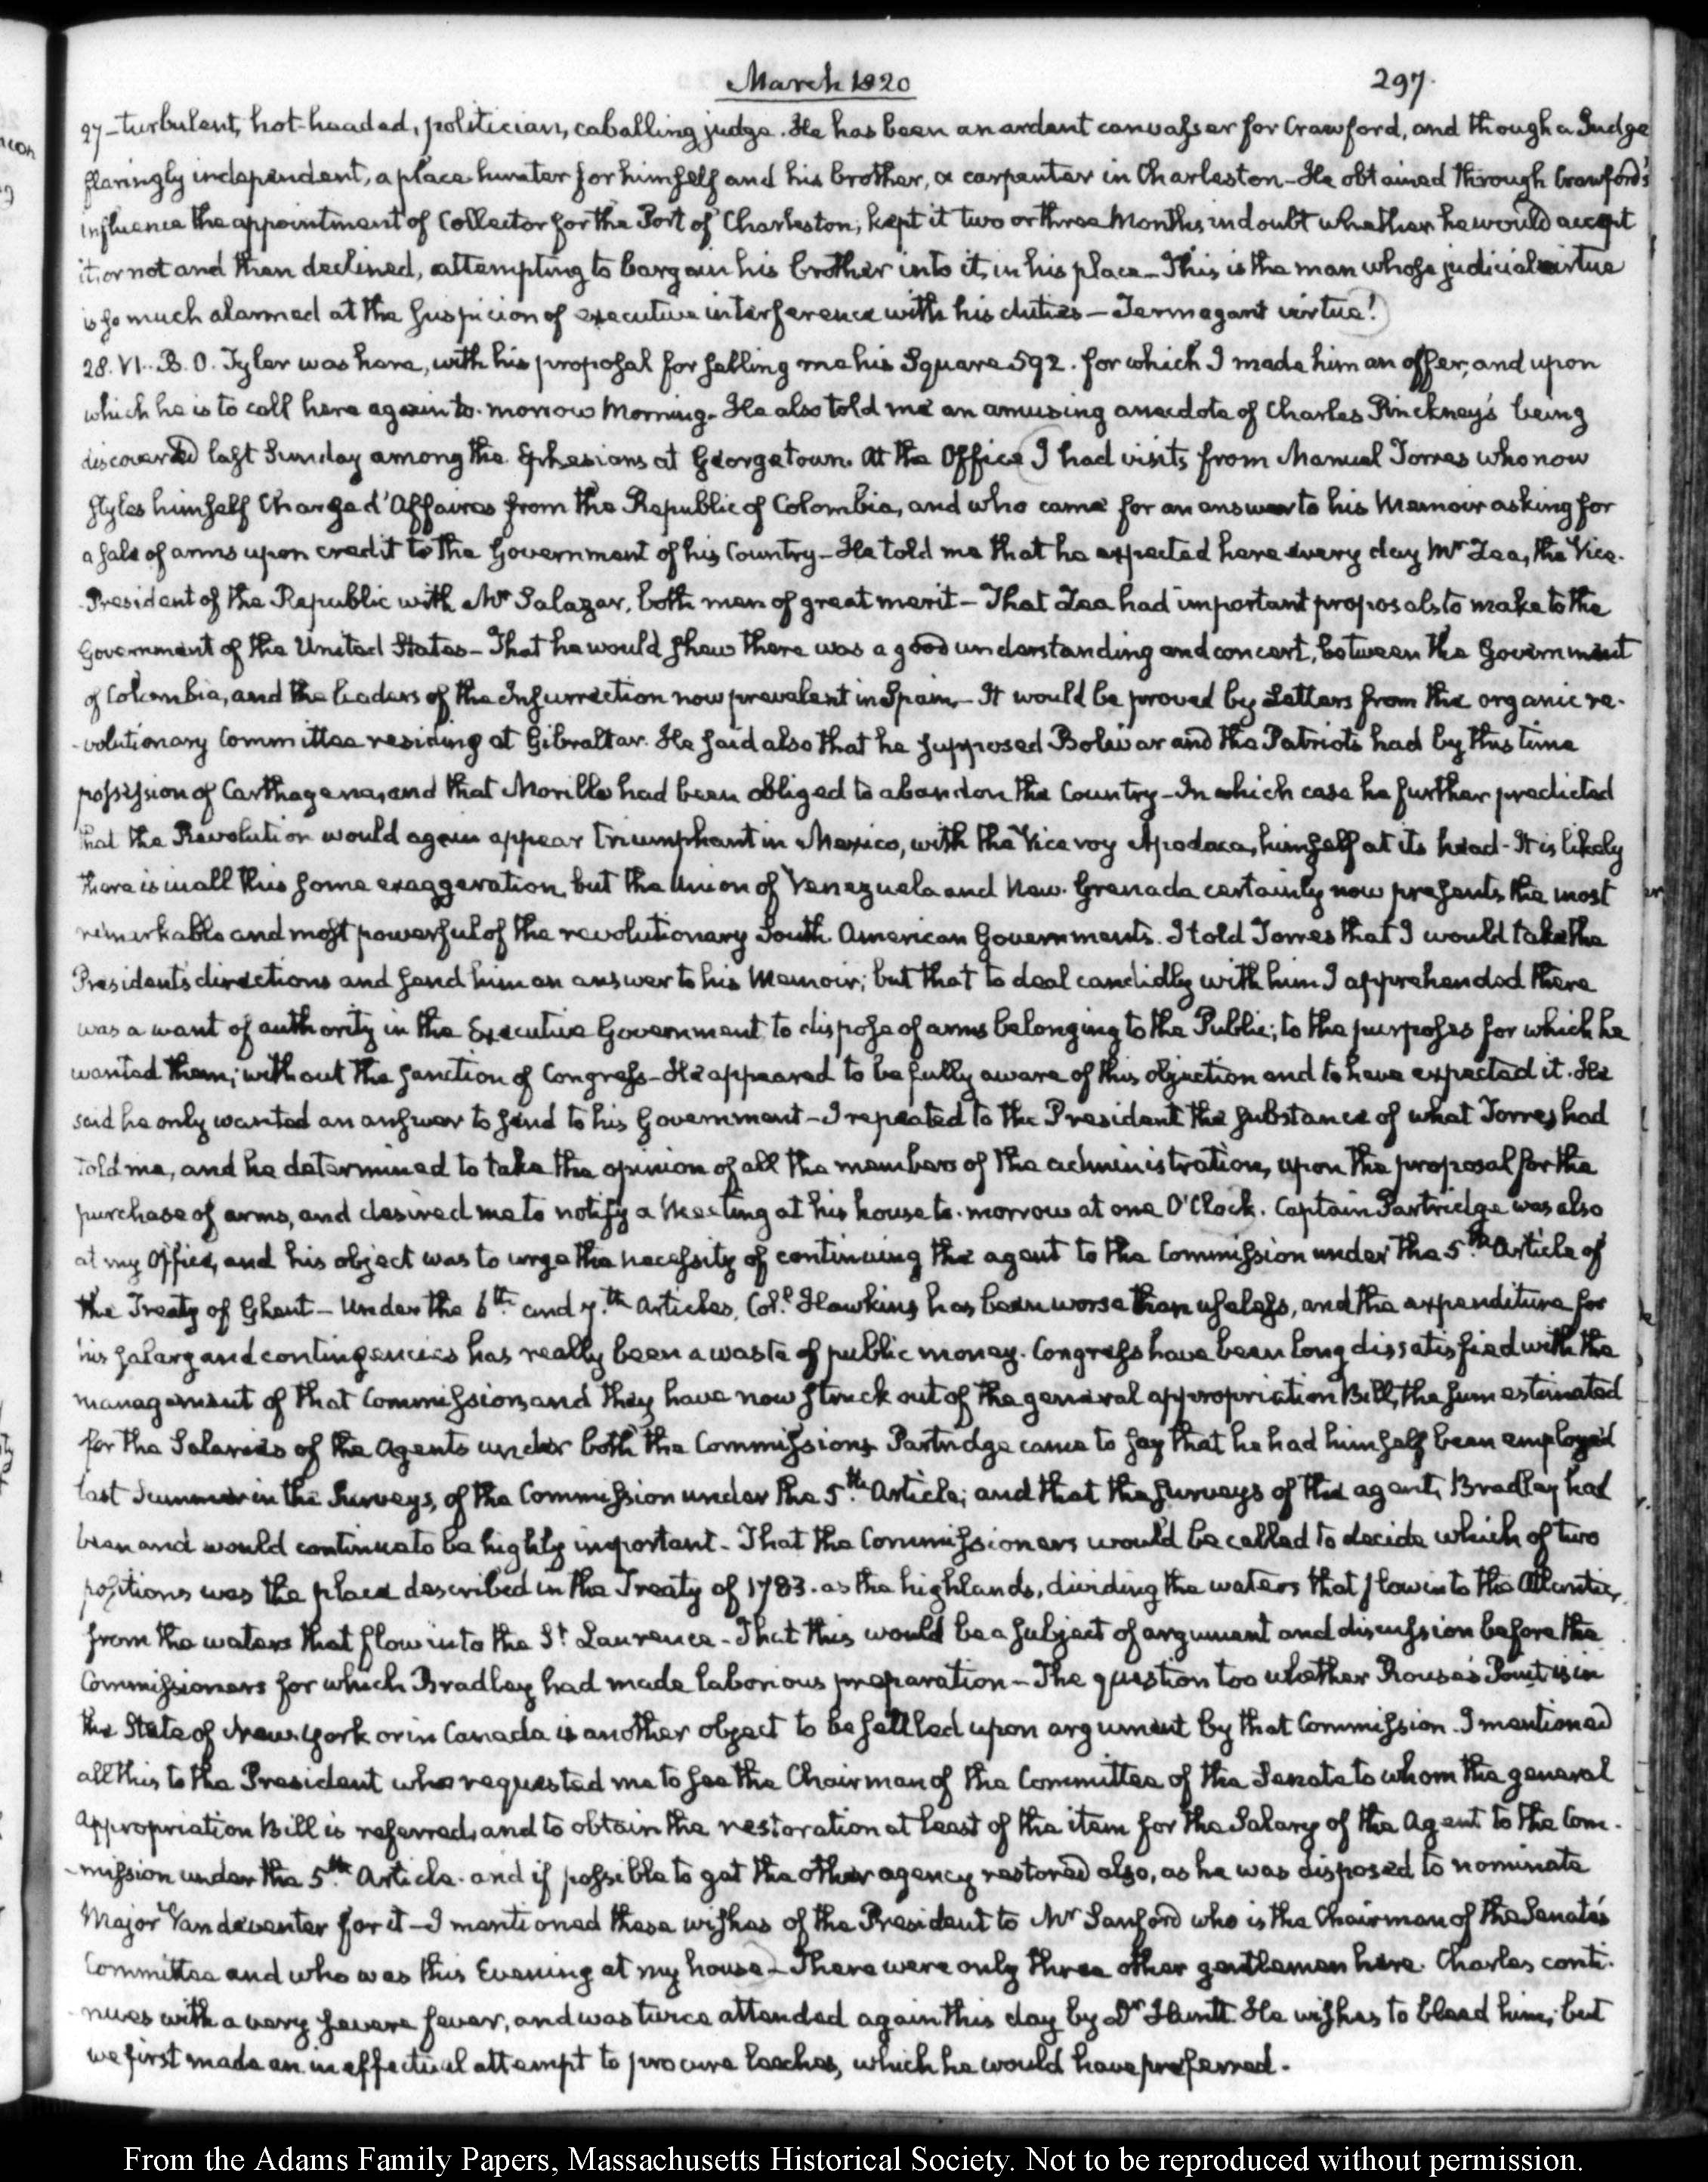 March 1820
297.
27 - turbulent, hot-headed, politician, caballing judge. He has been an ardent canvasser for Crawford, and though a Judge
flaringly independent, a place-hunter for himself and his brother, a carpenter in Charleston - He obtained through Crawford's
influence the appointment of Collector for the Port of Charleston; kept it two or three Months in doubt whether he would accept
it or not and then declined, attempting to bargain his brother into it, in his place - This is the man whose judicial virtue
is so much alarmed at the suspicion of executive interference with his duties - Termagant virtue!
28. VI. B. O. Tyler was here, with his proposal for selling me his Square 592. for which I made him an offer, and upon
which he is to call here again to-morrow Morning. He also told me an amusing anecdote of Charles Pinckney's being
discovered last Sunday among the Ephesians at Georgetown. At the Office I had visits from Manuel Torres who now
styles himself Chargé d'Affaires from the Republic of Colombia, and who came for an answer to his Memoir asking for
a sale of arms upon credit to the Government of his Country - He told me that he expected here every day Mr Zea, the Vice-
-President of the Republic with Mr Salazar, both men of great merit - That Zea had important proposals to make to the
Government of the United States - That he would shew there was a good understanding and concert, between the Government
of Colombia, and the leaders of the Insurrection now prevalent in Spain - It would be proved by Letters from the organic re-
-volutionary Committee residing at Gibraltar. He said also that he supposed Bolivar and the Patriots had by this time
possession of Carthagena, and that Morillo had been obliged to abandon the Country - In which case he further predicted
that the Revolution would again appear triumphant in Mexico, with the Viceroy Apodaca, himself at its head - It is likely
there is in all this some exaggeration, but the Union of Venezuela and New-Grenada certainly now presents the most
remarkable and most powerful of the revolutionary South American Governments. I told Torres that I would take the
President's directions and send him an answer to his Memoir; but that to deal candidly with him I apprehended there
was a want of authority in the Executive Government to dispose of arms belonging to the Public; to the purposes for which he
wanted them; without the sanction of Congress - He appeared to be fully aware of this objection and to have expected it. He
said he only wanted an answer to send to his Government - I repeated to the President the substance of what Torres had
told me, and he determined to take the opinion of all the members of the administration, upon the proposal for the
purchase of arms, and desired me to notify a Meeting at his house to-morrow at one O'Clock. Captain Partridge was also
at my Office, and his object was to urge the necessity of continuing the agent to the Commission under the 5th Article of
the Treaty of Ghent - Under the 6th and 7th Articles, Col. Hawkins has been worse than useless, and the expenditure for
his salary and contingencies has really been a waste of public money. Congress have been long dissatisfied with the
management of that Commission, and they have now struck out of the general appropriation Bill, the sum estimated
for the Salaries of the Agents under both the Commissions Partridge came to say that he had himself been employed
last Summer in the Surveys, of the Commission under the 5th Article; and that the surveys of the agent, Bradley had
been and would continue to be highly important - That the Commissioners would be called to decide which of two
positions was the place described in the Treaty of 1783. as the highlands, dividing the waters that flow into the Atlantic,
from the waters that flow into the St Laurence - That this would be a subject of argument and discussion before the
Commissioners for which Bradley had made laborious preparation - The question too whether Rouse's Point is in
the State of New York or in Canada is another object to be settled upon argument by that Commission. I mentioned
all this to the President who requested me to see the Chairman of the Committee of the Senate to whom the general
Appropriation Bill is referred, and to obtain the restoration at least of the item for the Salary of the Agent to the Com-
-mission under the 5th Article. and if possible to get the other agency restored also, as he was disposed to nominate
Major Vandeventer for it - I mentioned these wishes of the President to Mr Sanford who is the Chairman of the Senate's
Committee and who was this Evening at my house - There were only three other gentlemen here. Charles conti-
-nues with a very severe fever, and was twice attended again this day by Dr Huntt He wishes to bleed him; but
we first made an ineffectual attempt to procure leeches, which he would have preferred.
From the Adams Family Papers, Massachusetts Historical Society. Not to be reproduced without permission.